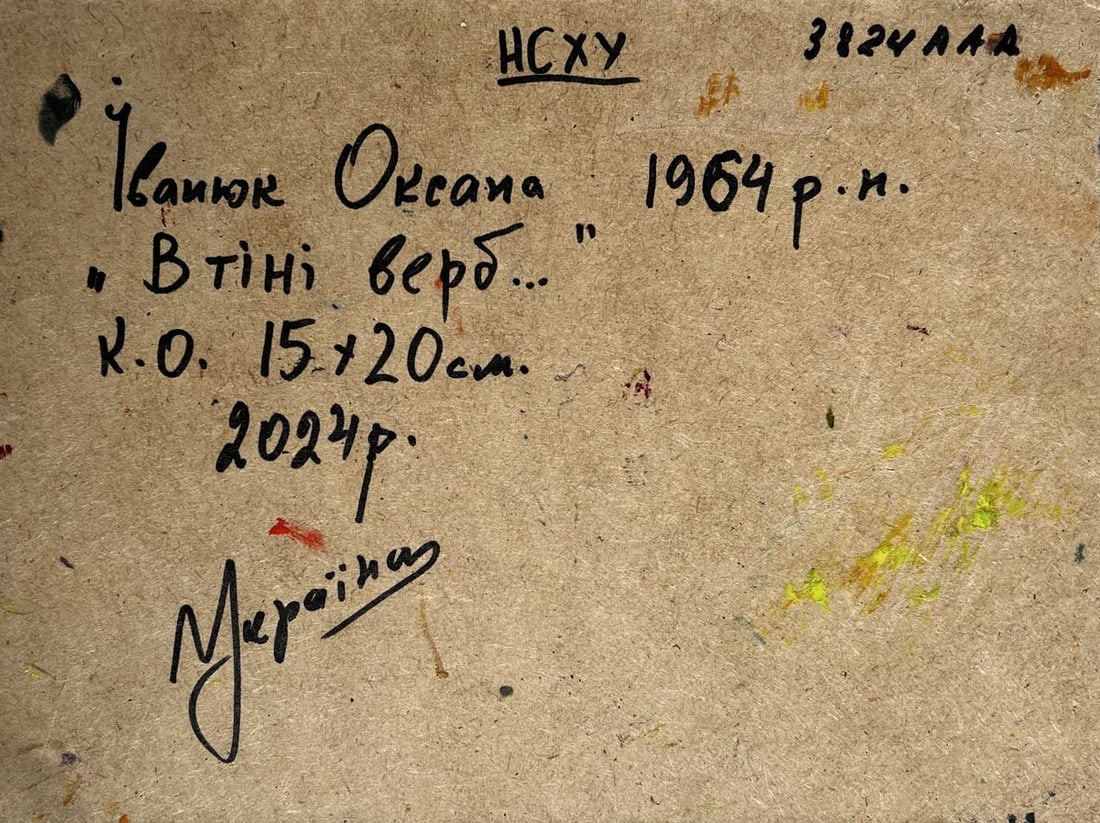 НСХУ
3824ААА
Іванюк Оксана 1964 р.н.
„ В тіні верб... "
к.о. 15х20см.
2024р.
Україна